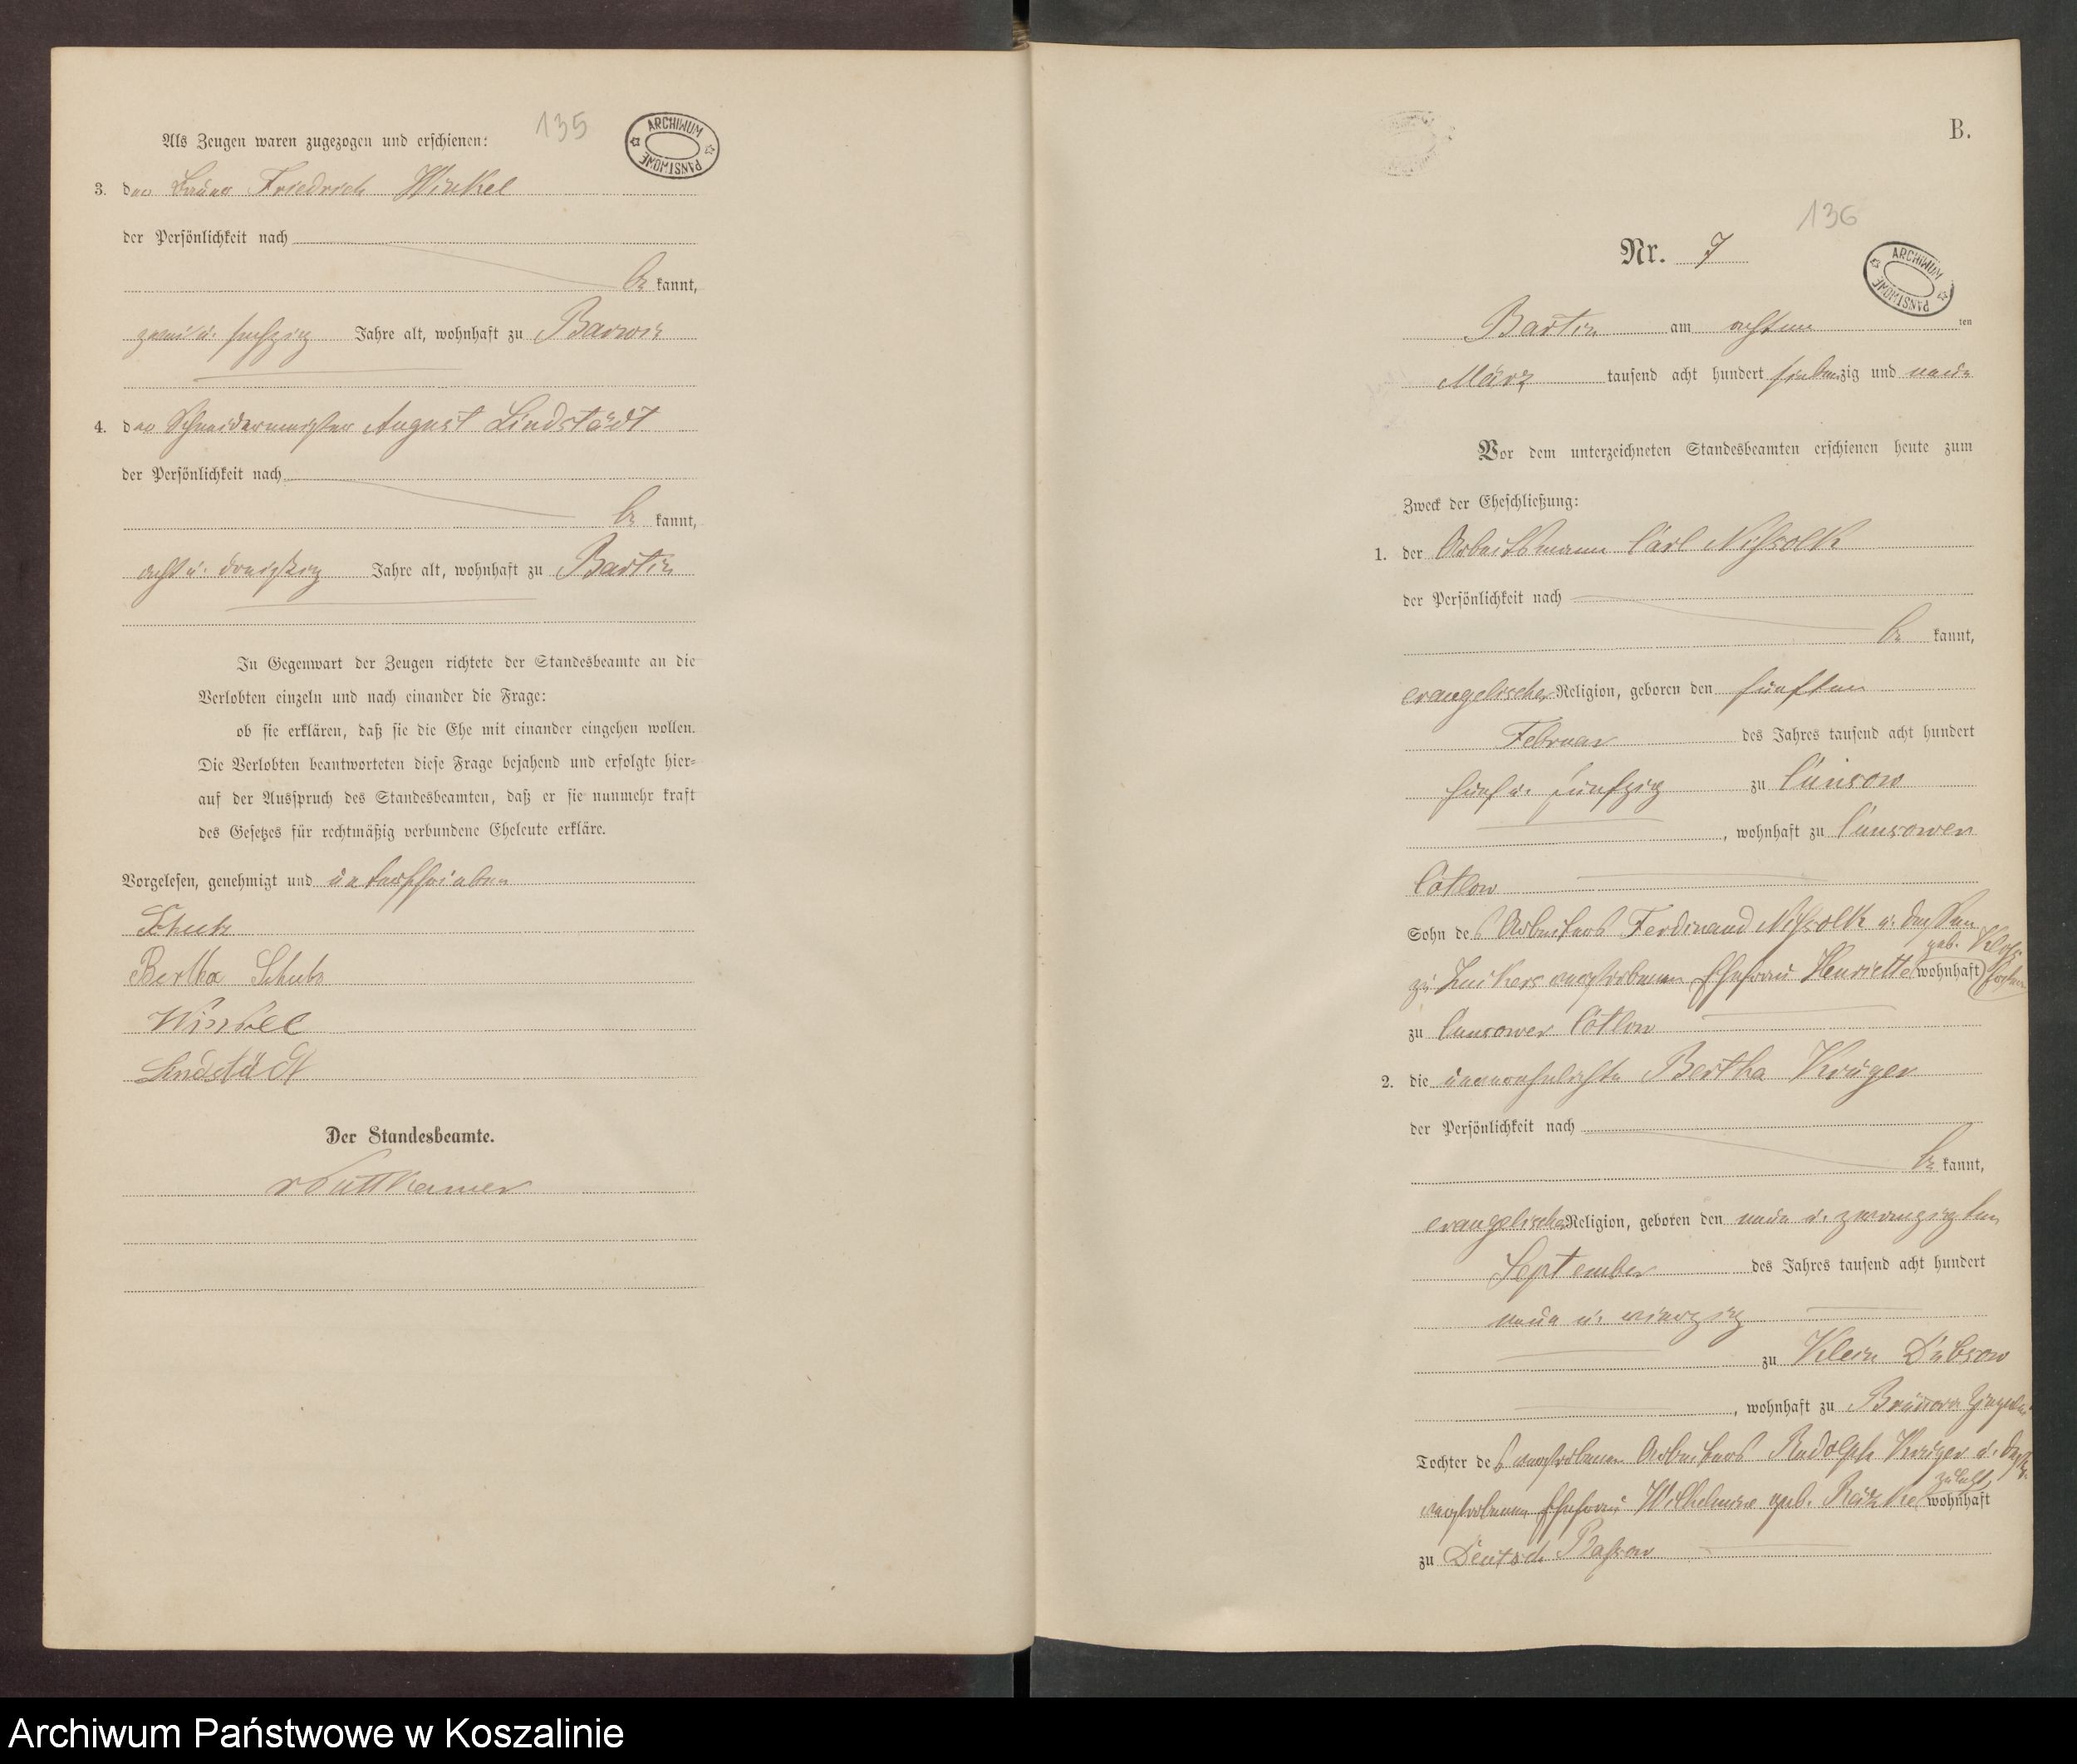 135
ARCHIWUM PAŃSTWOWE
Als Zeugen waren zugezogen und erschienen:
3. den Bauer Friedrich Winkel
der Persönlichkeit nach
be kannt,
zwei u. fufzig Jahre alt, wohnhaft zu Barvin
4. den Schneidermeister August Lindstädt
der Persönlichkeit nach
be kannt,
acht u. dreißig Jahre alt, wohnhaft zu Bartin
In Gegenwart der Zeugen richtete der Standesbeamte an die
Verlobten einzeln und nach einander die Frage:
ob sie erklären, daß sie die Ehe mit einander eingehen wollen.
Die Verlobten beantworteten diese Frage bejahend und erfolgte hier-
auf der Ausspruch des Standesbeamten, daß er sie nunmehr kraft
des Gesetzes für rechtmäßig verbundene Eheleute erkläre.
Vorgelesen, genehmigt und unterschrieben
Bertha
Winkel
Lindstädt
Der Standesbeamte.
vPuttkamer
B.
136
Nr. 7
ARCHIWUM PAŃSTWOWE
Bartin am achten ten
März tausend acht hundert siebenzig und neun
Vor dem unterzeichneten Standesbeamten erschienen heute zum
Zweck der Eheschließung:
1. der Arbeitsmann Carl
der Persönlichkeit nach
be kannt,
evangelischer Religion, geboren den fünften
Februar des Jahres tausend acht hundert
fünf u. fünfzig zu Cunsow
, wohnhaft zu Cunsower
Sohn des Arbeiters Ferdinand u. dessen
geb.
zu verstorbenen Ehefrau Henriette wohnhaft
zu Cunsower
2. die unverehelichte Bertha Krüger
der Persönlichkeit nach
be kannt,
evangelischer Religion, geboren den neun u. zwanzigsten
September des Jahres tausend acht hundert
neun u. vierzig
zu Klein Dübsow
, wohnhaft zu
Tochter des verstorbenen Arbeiters Rudolph Krüger u. dessen
zuletzt
verstorbenen Ehefrau Wilhelmine geb. wohnhaft
zu Deutsch
Archiwum Państwowe w Koszalinie